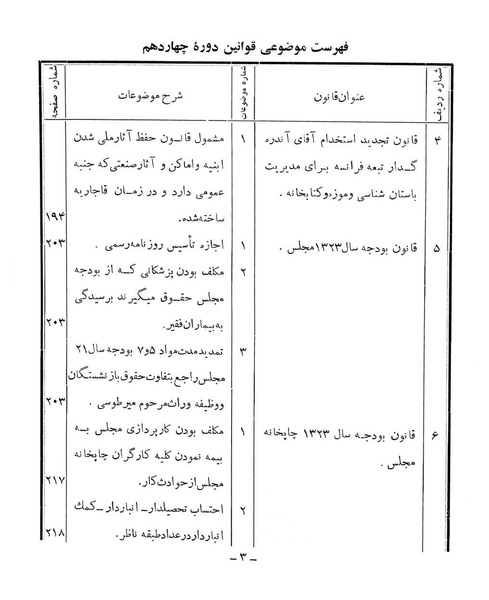 فهرست موضوعی قوانین دورهٔ چهاردهم
شماره ردیف
عنوان قانون
شماره موضوعات
شرح موضوعات
شماره صفحه
۴
قانون تجدید استخدام آقای آندره
گدار تبعه فرانسه برای مدیریت
باستان شناسی وموزه وکتابخانه .
۱
مشمول قانون حفظ آثارملی شدن
ابنیه واماکن و آثارصنعتی که جنبه
عمومی دارد و در زمان قاجاریه
ساخته شده.
۱۹۴
۵
قانون بودجه سال ۱۳۲۳ مجلس .
۱
اجازه تأسیس روزنامه رسمی .
۲۰۳
۲
مکلف بودن پزشکانی که از بودجه
مجلس حقوق میگیرند برسیدگی
به بیماران فقیر.
۲۰۳
۳
تمدید مدت مواد ۵و۷ بودجه سال ۲۱
مجلس راجع بتفاوت حقوق بازنشستگان
ووظیفه وراث مرحوم میرطوسی .
۲۰۳
۶
قانون بودجه سال ۱۳۲۳ چاپخانه
مجلس .
۱
مکلف بودن کارپردازی مجلس به
بیمه نمودن کلیه کارگران چاپخانه
مجلس از حوادث کار.
۲۱۷
۲
احتساب تحصیلدار ـ انباردار ـ کمك
انباردار در عداد طبقه ناظر.
۲۱۸
ـ ۳ ـ